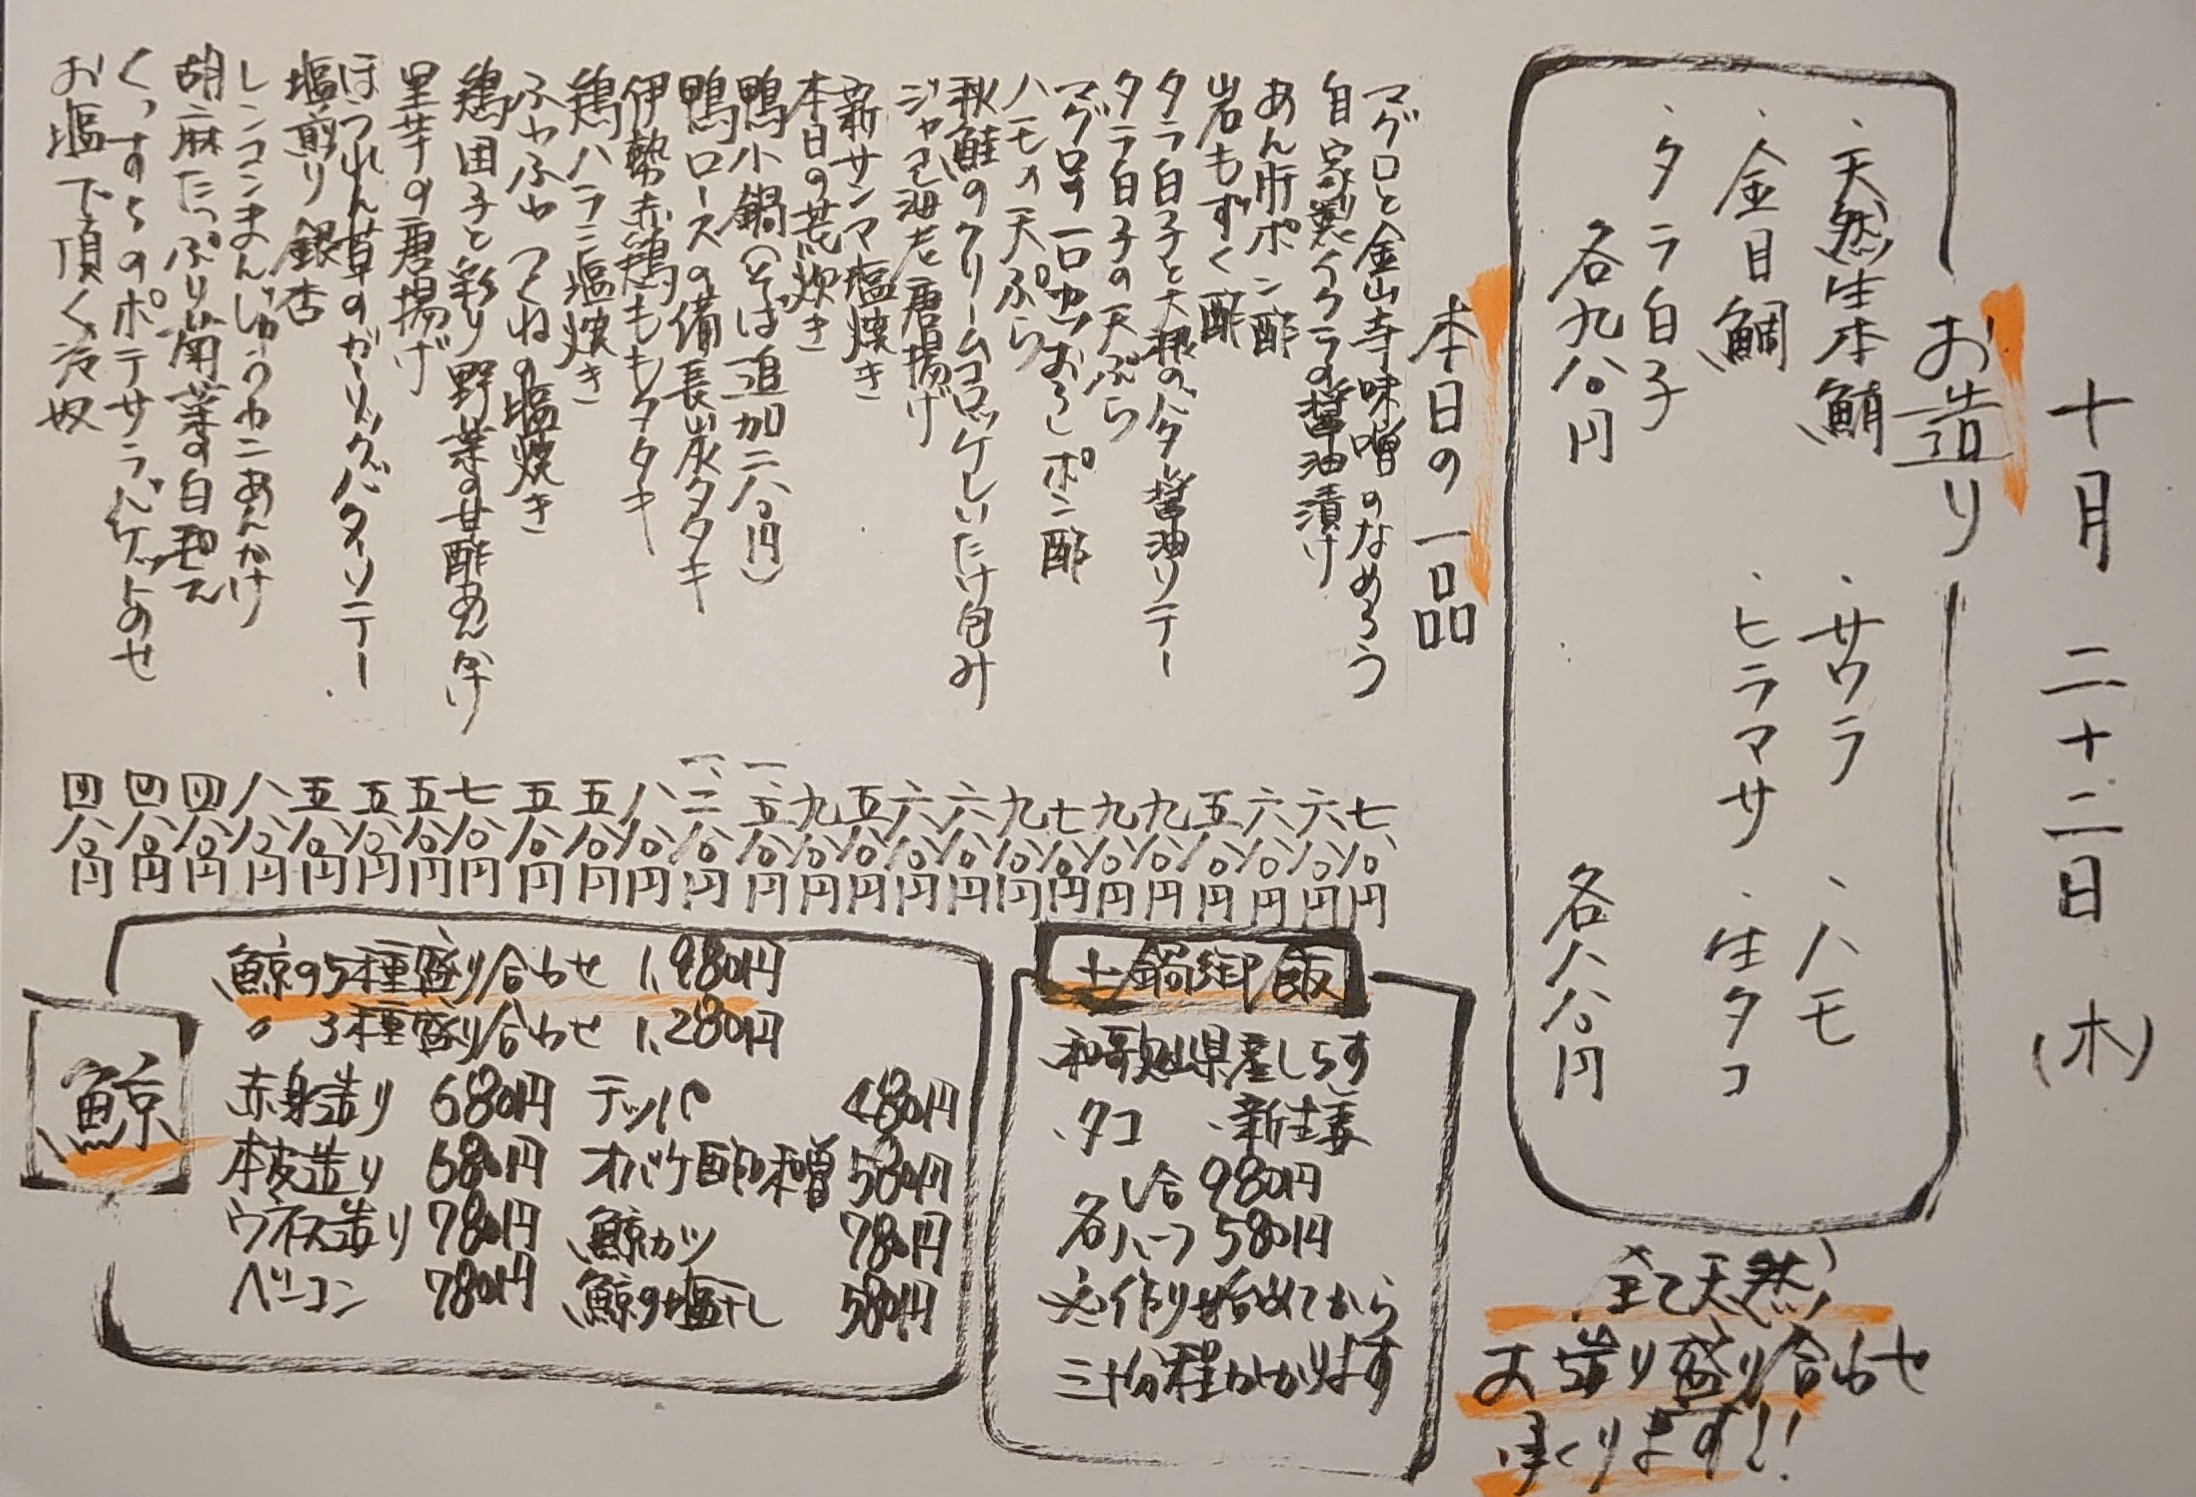 十月二十二日(木)
お造り
・天然生本鮪
・金目鯛
・タラ白子
各九八〇円
・サワラ
・ヒラマサ
・ハモ
・生タコ
各八八〇円
全て天然
お造り盛り合わせ
承ります!!
本日の一品
マグロと金山寺味噌のなめろう 七八〇円
自家製イクラの醤油漬け 六八〇円
あん肝ポン酢 六八〇円
岩もずく酢 五八〇円
タラ白子と大根のバター醤油ソテー 九八〇円
タラ白子の天ぷら 九八〇円
マグロの一口カツおろしポン酢 七八〇円
ハモの天ぷら 九八〇円
秋鮭のクリームコロッケしいたけ包み 六八〇円
ジャコ海老唐揚げ 六八〇円
新サンマ塩焼き 五八〇円
本日の荒炊き 九八〇円
鴨小鍋(そば追加二八〇円) 一、五八〇円
鴨ロースの備長炭タタキ 一、二八〇円
伊勢赤鶏ももタタキ 八八〇円
鶏ハラミ塩焼き 五八〇円
ふわふわつくねの塩焼き 五八〇円
鶏団子と彩り野菜の甘酢あんかけ 七八〇円
里芋の唐揚げ 五八〇円
ほうれん草のガーリックバターソテー 五八〇円
塩煎り銀杏 五八〇円
レンコンまんじゅうカニあんかけ 八八〇円
胡麻たっぷり菊菜の白和え 四八〇円
くっすらのポテサラバゲットのせ 四八〇円
お塩で頂く冷奴 四八〇円
土鍋御飯
・和歌山県産しらす
・タコ ・新生姜
一合 980円
各ハーフ 580円
※作り始めてから
三十分程かかります
鯨
鯨の5種盛り合わせ 1,980円
〃 3種盛り合わせ 1,280円
赤身造り 680円
本皮造り 680円
ウネス造り 780円
ベーコン 780円
テッパ 480円
オバケ酢味噌 580円
鯨カツ 780円
鯨の塩干し 580円